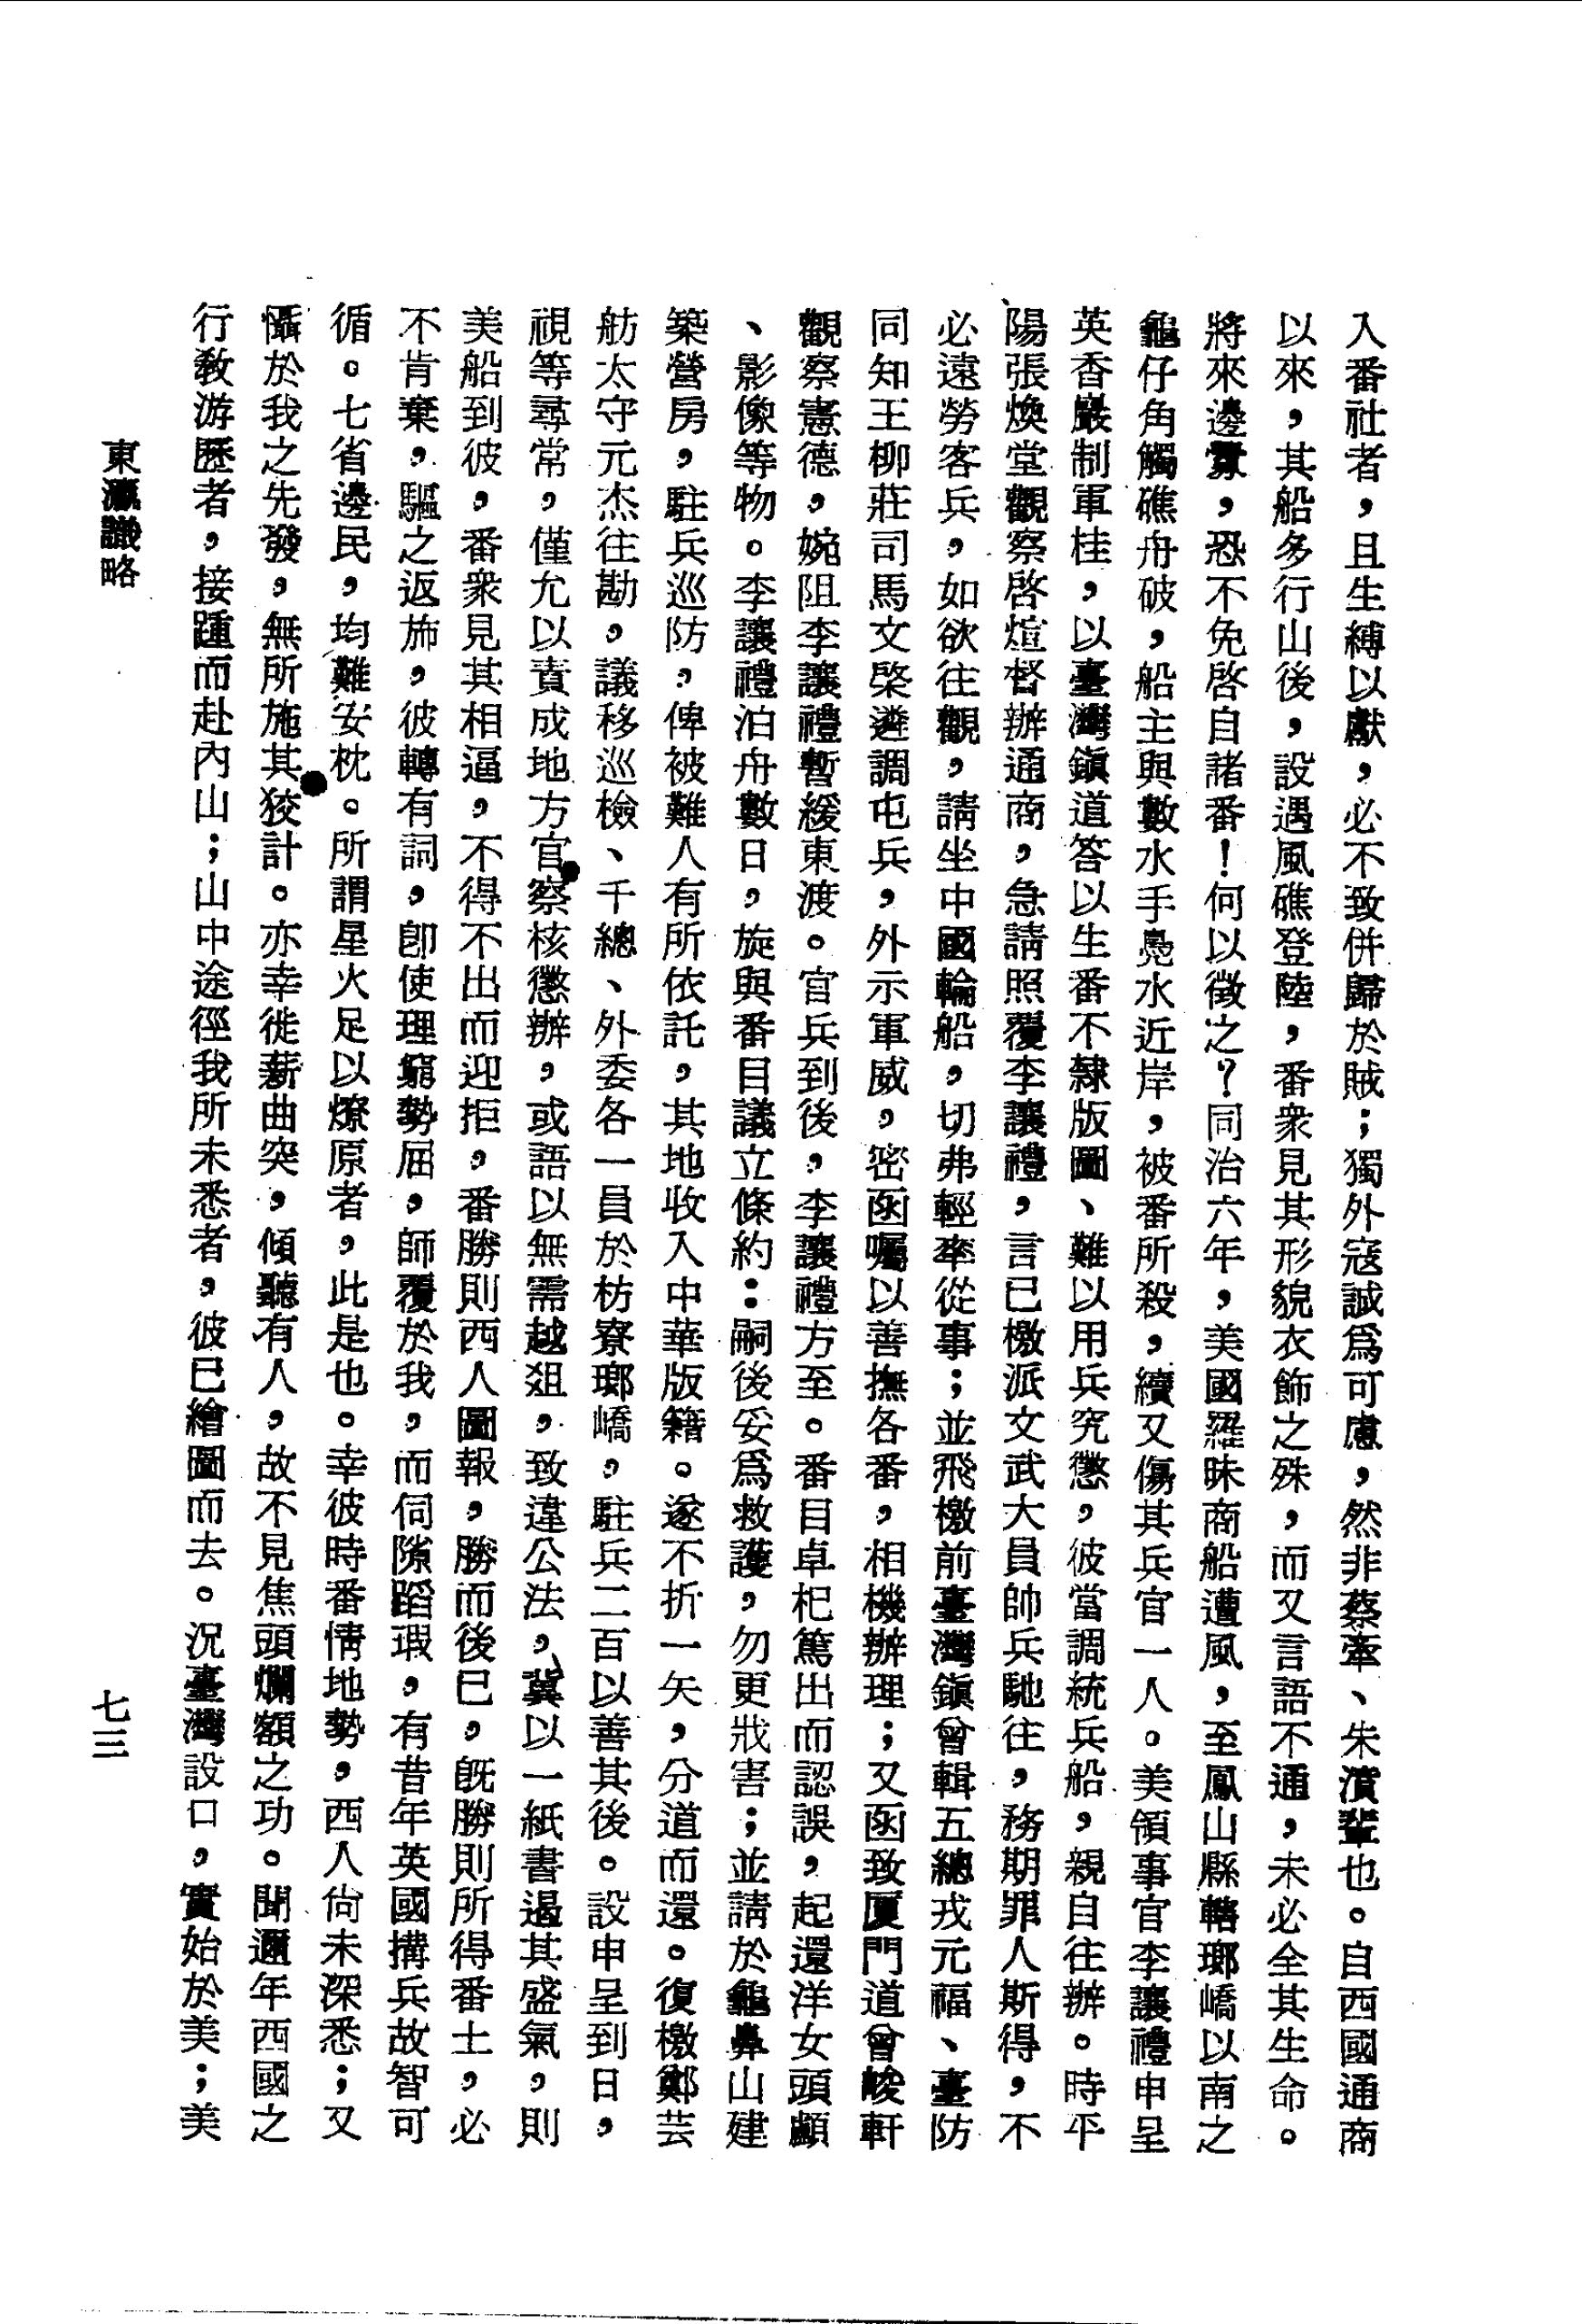 入番社者，且生縛以獻，必不致併歸於賊；獨外寇誠爲可慮，然非蔡牽、朱濆輩也。自西國通商
以來，其船多行山後，設遇風礁登陸，番衆見其形貌衣飾之殊，而又言語不通，未必全其生命。
將來邊釁，恐不免啓自諸番！何以徵之？同治六年，美國羅昧商船遭風，至鳳山縣轄瑯嶠以南之
龜仔角觸礁舟破，船主與數水手鳧水近岸，被番所殺，續又傷其兵官一人。美領事官李讓禮申呈
英香巖制軍桂，以臺灣鎭道答以生番不隸版圖、難以用兵究懲，彼當調統兵船，親自往辦。時平
陽張煥堂觀察啓煊督辦通商，急請照覆李讓禮，言已檄派文武大員帥兵馳往，務期罪人斯得，不
必遠勞客兵，如欲往觀，請坐中國輪船，切弗輕率從事；並飛檄前臺灣鎭曾輯五總戎元福、臺防
同知王柳莊司馬文棨遴調屯兵，外示軍威，密函囑以善撫各番，相機辦理；又函致厦門道曾峻軒
觀察憲德，婉阻李讓禮暫緩東渡。官兵到後，李讓禮方至。番目卓杞篤出而認誤，起還洋女頭顱
、影像等物。李讓禮泊舟數日，旋與番目議立條約：嗣後妥爲救護，勿更戕害；並請於龜鼻山建
築營房，駐兵巡防，俾被難人有所依託，其地收入中華版籍。遂不折一矢，分道而還。復檄鄭芸
舫太守元杰往勘，議移巡檢、千總、外委各一員於枋寮瑯嶠，駐兵二百以善其後。設申呈到日，
視等尋常，僅允以責成地方官察核懲辦，或語以無需越俎，致違公法，冀以一紙書遏其盛氣，則
美船到彼，番衆見其相逼，不得不出而迎拒，番勝則西人圖報，勝而後已，旣勝則所得番土，必
不肯棄，驅之返斾，彼轉有詞，卽使理窮勢屈，師覆於我，而伺隙蹈瑕，有昔年英國搆兵故智可
循。七省邊民，均難安枕。所謂星火足以燎原者，此是也。幸彼時番情地勢，西人尙未深悉；又
懾於我之先發，無所施其狡計。亦幸徙薪曲突，傾聽有人，故不見焦頭爛額之功。聞邇年西國之
行敎游歷者，接踵而赴內山；山中途徑我所未悉者，彼已繪圖而去。況臺灣設口，實始於美；美
東瀛識略
七三